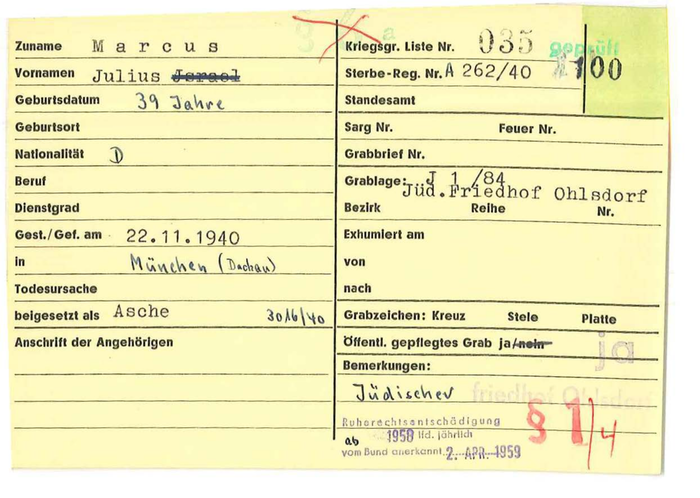 Zuname Marcus
Vornamen Julius Israel
Geburtsdatum 39 Jahre
Geburtsort
Nationalität D
Beruf
Dienstgrad
Gest./Gef. am 22.11.1940
in München (Dachau)
Todesursache
beigesetzt als Asche 3016/40
Anschrift der Angehörigen
§ a
Kriegsgr. Liste Nr. 035 geprüft
Sterbe-Reg. Nr. A 262/40 100
Standesamt
Sarg Nr. Feuer Nr.
Grabbrief Nr.
Grablage: J 1 /84
Jüd.Friedhof Ohlsdorf
Bezirk Reihe Nr.
Exhumiert am
von
nach
Grabzeichen: Kreuz Stele Platte
Öffentl. gepflegtes Grab ja/nein ja
Bemerkungen:
Jüdischer friedhof Ohlsdorf
Ruherechtsentschädigung
ab 1958 lfd. jährlich
vom Bund anerkannt 2. APR. 1959
§ 1/4